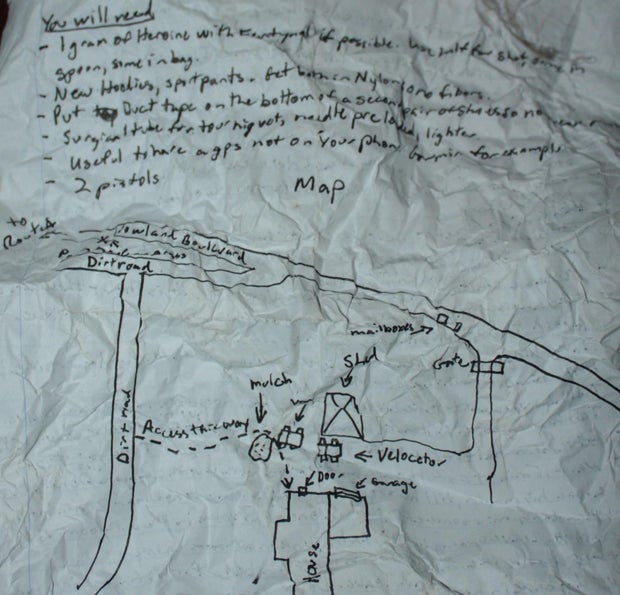 You will need
- 1 gram of Heroine with if possible. use half for shot, some in
spoon, some in bag.
- New Hoodies, sportpants. Get both in Nylon, no fibers.
- Put Duct tape on the bottom of a second pair of shoes so no
- Surgical tube for tourniquet, needle pre loaded, lighter
- Useful to have a gps not on your phone for example
- 2 pistols
Map
to
Rowland Boulevard
XX
Dirtroad
mailboxes
Gate
Shed
mulch
Dirtroad
Access this way
Velocetor
Door
Garage
House